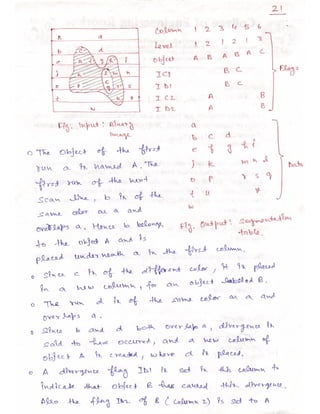 21
Column 1 2 3 4 5 6
Level 1 2 1 2 1 3
Object A B A B A C
IC1 B C
ID1 B C
IC2 A B
ID2 A B
Flags
a
b c d
e f g h i
j k m n l
o p r s q
t u
w
Data
Fig: Input: Binary Image
Fig. Output: Segmentation table.
o The object of the first
run a is named A. The
first run of the next
scan line, b is of the
same color as a and
overlaps a. Hence b belongs
to the object A and is
placed underneath a in the first column.
o Since c is of the different color, it is placed
in a new column, for an object labeled B.
o The run d is of the same color as a and
overlaps a.
o Since b and d both overlap a, divergence is
said to have occured, and a new column of
object A is created, where d is placed.
o A divergence flag ID1 is set in this column to
indicate that object B has caused this divergence.
Also the flag ID2 of B (column 2) is set to A